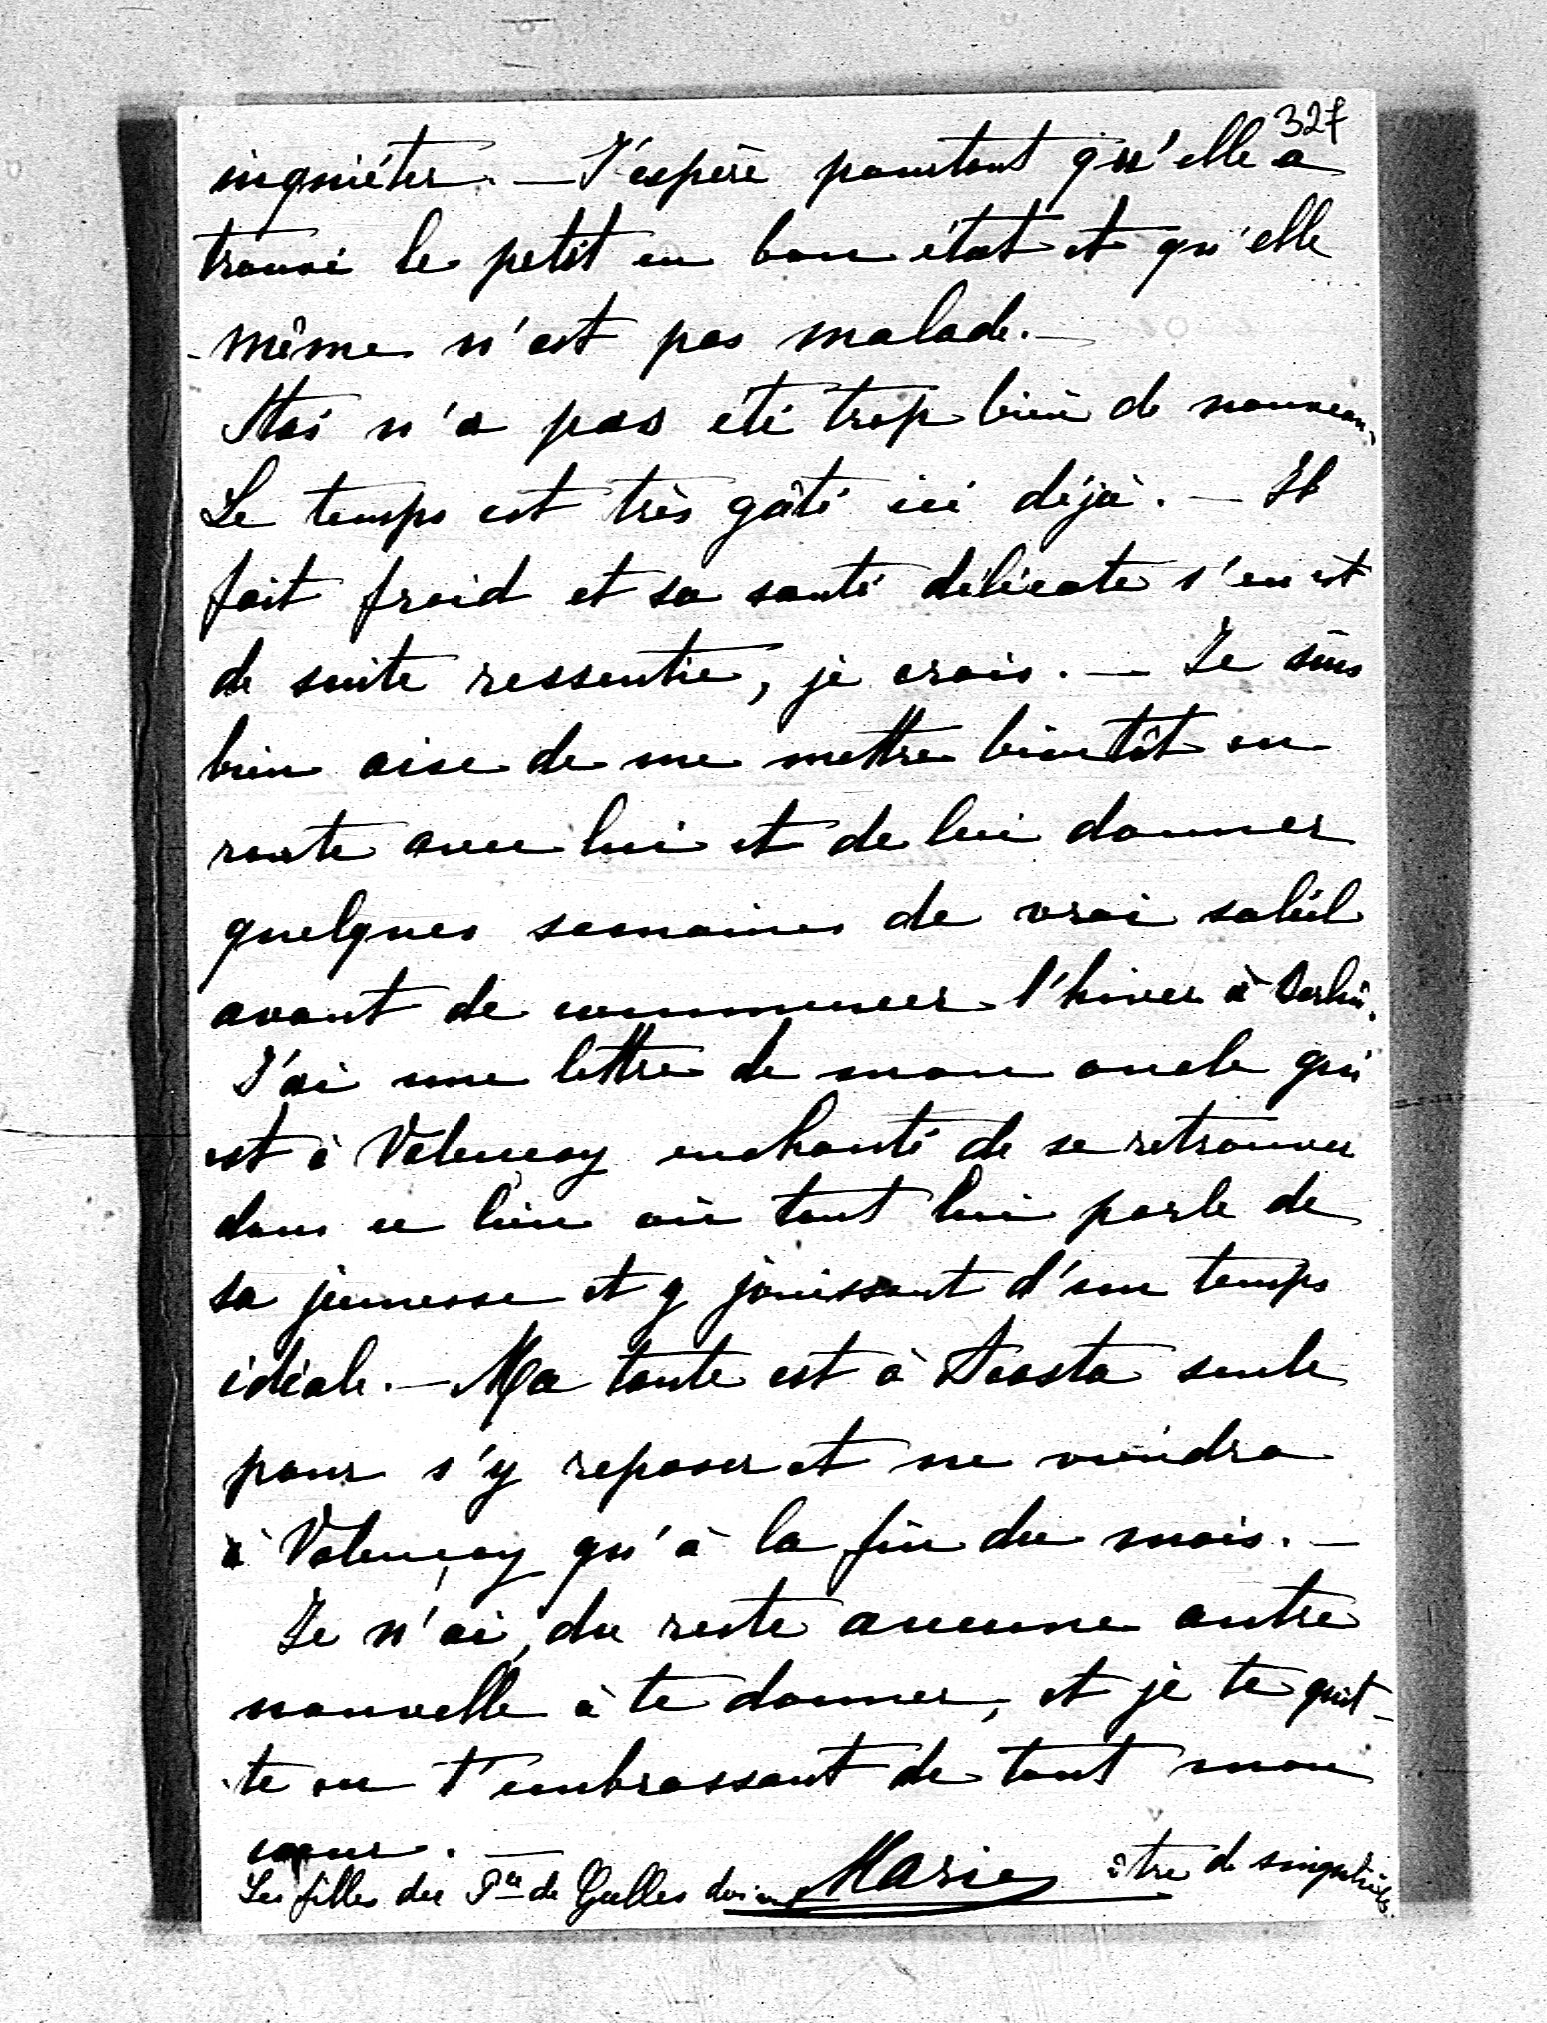 327
inquiéter. — J'espère pourtant qu'elle a
trouvé le petit en bon état et qu'elle
même n'est pas malade. —
Stas n'a pas été trop bien de nouveau.
Le temps est très gâté ici déjà. — Il
fait froid et sa santé délicate s'en est
de suite ressentie, je crois. — Je suis
bien aise de me mettre bientôt en
route avec lui et de lui donner
quelques semaines de vrai soleil
avant de commencer l'hiver à Berlin.
J'ai une lettre de mon oncle qui
est à Valençay enchanté de se retrouver
dans ce lieu où tout lui parle de
sa jeunesse et y jouissant d'un temps
idéale. — Ma tante est à Acosta seule
pour s'y reposer et ne viendra
à Valençay qu'à la fin du mois. —
Je n'ai, du reste aucune autre
nouvelle à te donner, et je te quit-
te en t'embrassant de tout mon
cœur. —
Marie
Les filles du Pce de Galles doivent être de singuliers